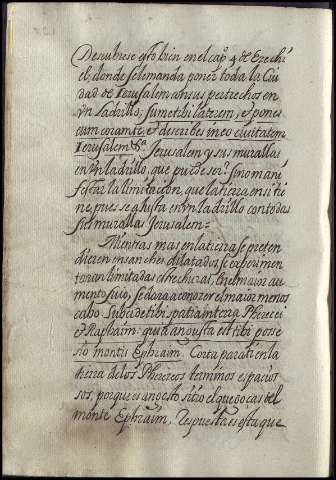 Descubrese esto bien en el cap. 4 de Ezechi
el, donde se le manda poner toda la Ciu
dad de Ierusalem a sus pertrechos en
vn Ladrillo; sume tibi laterem, et pones
eum coram te, et describes in eo civitatem
Ierusalem &a. Jerusalem y sus murallas
en vn ladrillo, que puede ser? sino mani
festar la limitacion, que la tierra en si tie
ne, pues se ajusta en vn ladrillo con todas
sus murallas Jerusalem =
Mientras mas en la tierra se preten
dieren ensanches dilatados, se experimen
taran limitadas estrechuras, en el maior au
mento suio, se dara a conozer el maior menos
cabo. Succide tibi spatia in terra Pherecei
et Raphaim: quia angusta est tibi posse
sio montis Ephraim. Corta para ti en la
tierra de los Phereeos terminos espacio
sos, porque es angosto sitio el que gozas del
monte Ephraim, respuesta es esta que